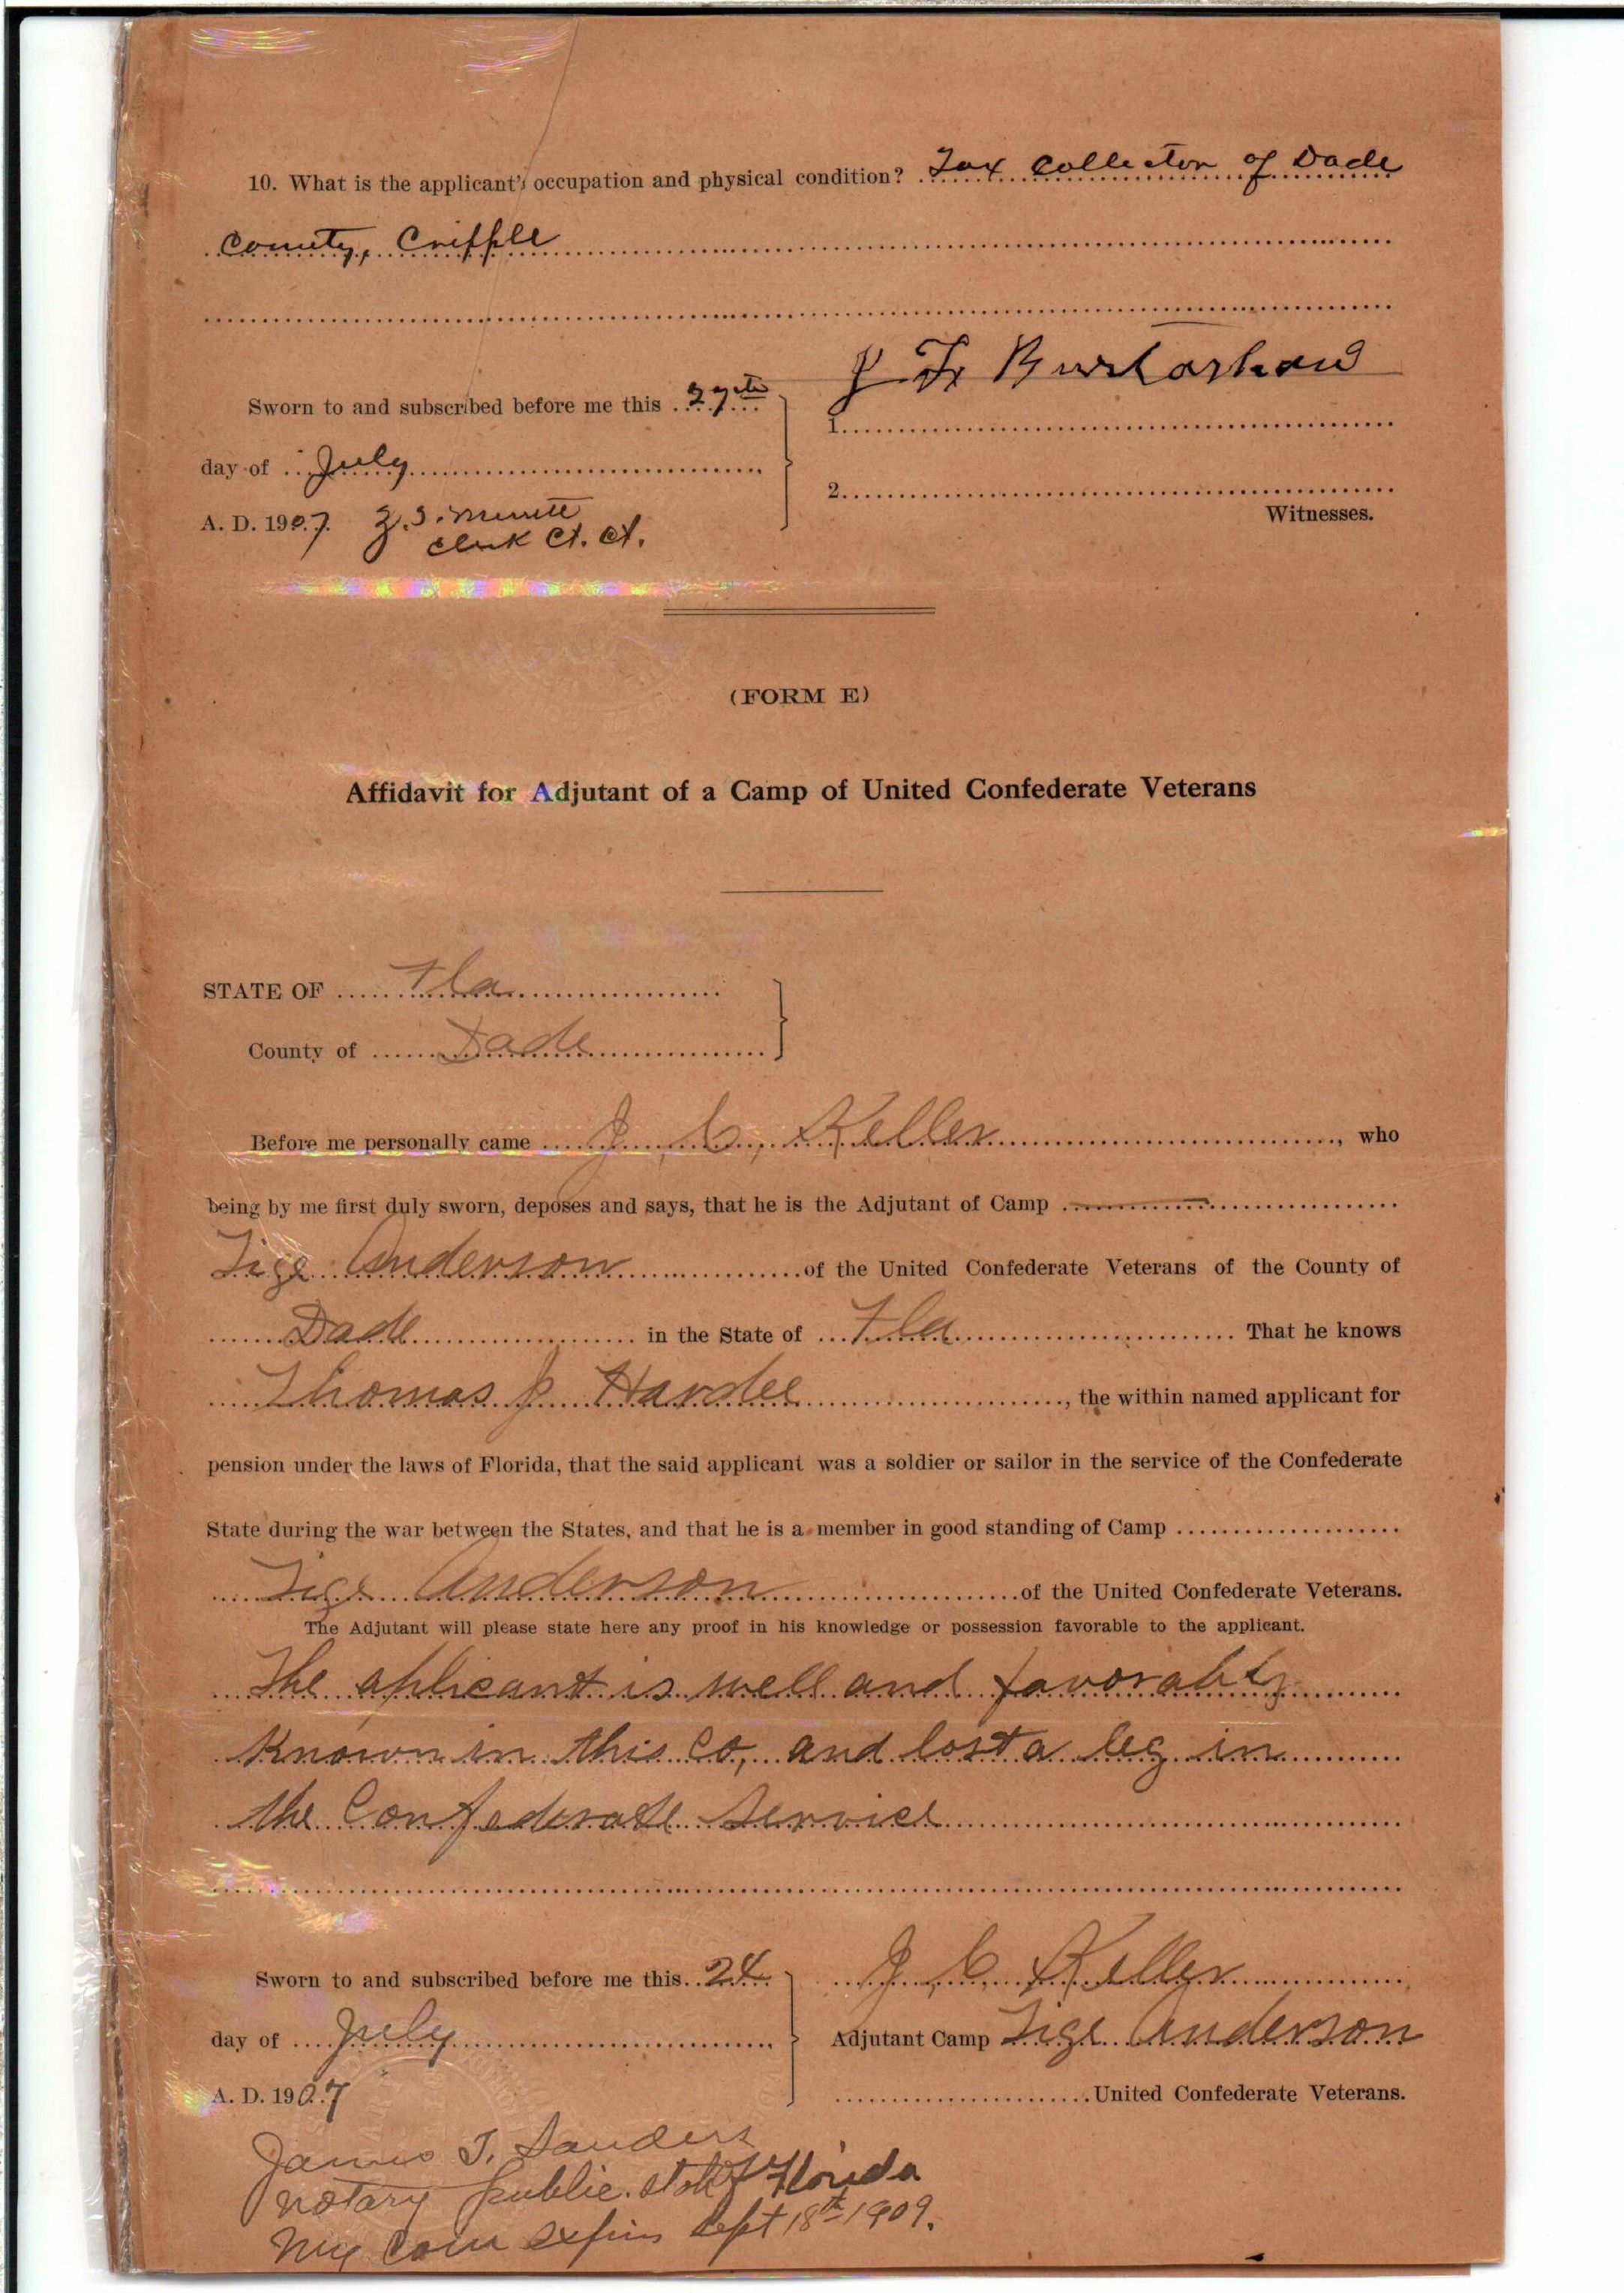 10. What is the applicant's occupation and physical condition? Tax Collector of Dade
County, Cripple
Sworn to and subscribed before me this 27th
day of July
A. D. 1907.
Clerk Ct. Ct.
J F
1.
2.
Witnesses.
(FORM E)
Affidavit for Adjutant of a Camp of United Confederate Veterans
STATE OF Fla
County of Dade
Before me personally came J. C. Keller, who
being by me first duly sworn, deposes and says, that he is the Adjutant of Camp
Tige Anderson of the United Confederate Veterans of the County of
Dade in the State of Fla That he knows
Thomas J. Hardee, the within named applicant for
pension under the laws of Florida, that the said applicant was a soldier or sailor in the service of the Confederate
State during the war between the States, and that he is a member in good standing of Camp
Tige Anderson of the United Confederate Veterans.
The Adjutant will please state here any proof in his knowledge or possession favorable to the applicant.
The aplicant is well and favorably
Known in this Co, and lost a leg in
the Confederate Service
Sworn to and subscribed before me this 24
day of July
A. D. 1907
J. C. Keller
Adjutant Camp Tige Anderson
United Confederate Veterans.
James T. Sanders
Notary Public. State of Florida
My Com expires Sept 18th 1909.